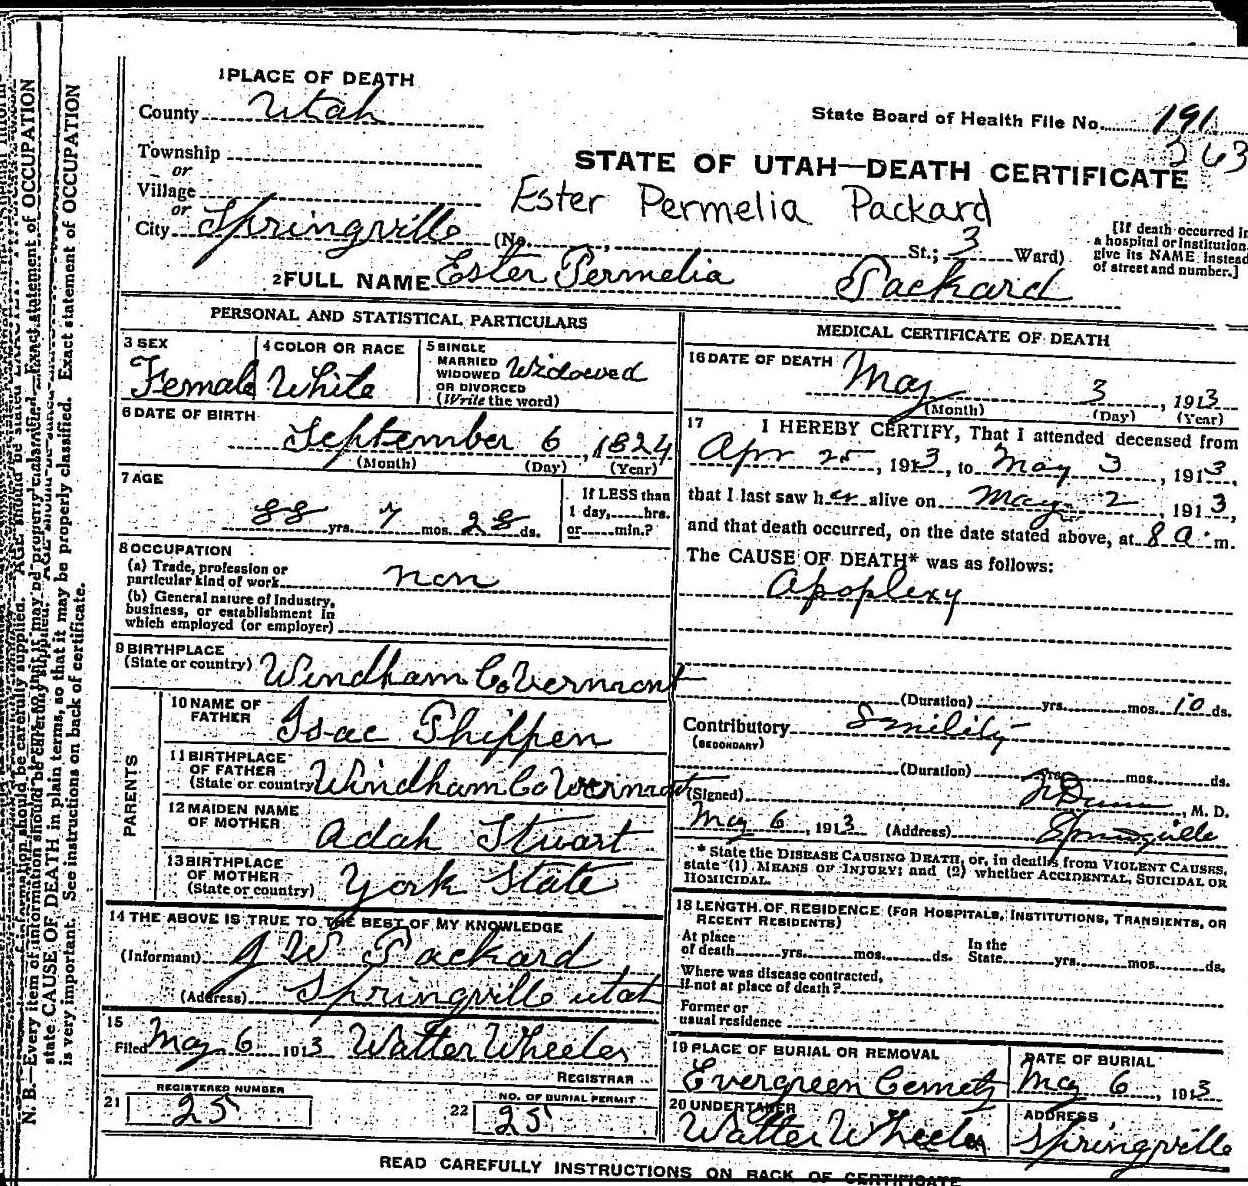 1 PLACE OF DEATH
County Utah
State Board of Health File No. 191
263
Township
or
STATE OF UTAH—DEATH CERTIFICATE
Village
or
Ester Permelia Packard
City Springville (No. , St.; 3 Ward)
[If death occurred in
a hospital or institution,
give its NAME instead
of street and number.]
2 FULL NAME Ester Permelia Packard
PERSONAL AND STATISTICAL PARTICULARS
3 SEX
Female
4 COLOR OR RACE
White
5 SINGLE
MARRIED
WIDOWED
OR DIVORCED
(Write the word)
Widowed
6 DATE OF BIRTH
September 6, 1824
(Month) (Day) (Year)
7 AGE
88 yrs. 7 mos. 28 ds.
If LESS than
1 day, hrs.
or min.?
8 OCCUPATION
(a) Trade, profession or
particular kind of work non
(b) General nature of Industry,
business, or establishment in
which employed (or employer)
9 BIRTHPLACE
(State or country) Windham Co Vermont
PARENTS
10 NAME OF
FATHER Isac Phippen
11 BIRTHPLACE
OF FATHER
(State or country) Windham Co Vermont
12 MAIDEN NAME
OF MOTHER Adah Stuart
13 BIRTHPLACE
OF MOTHER
(State or country) York State
14 THE ABOVE IS TRUE TO THE BEST OF MY KNOWLEDGE
(Informant) J W Packard
(Address) Springville utah
15
Filed May 6 1913 Walter Wheeler
REGISTRAR
REGISTERED NUMBER
21 25
NO. OF BURIAL PERMIT
22 25
MEDICAL CERTIFICATE OF DEATH
16 DATE OF DEATH
May 3, 1913
(Month) (Day) (Year)
17 I HEREBY CERTIFY, That I attended deceased from
Apr 25, 1913, to May 3, 1913,
that I last saw her alive on May 2, 1913,
and that death occurred, on the date stated above, at 8 a. m.
The CAUSE OF DEATH* was as follows:
Apoplexy
(Duration) yrs. mos. 10 ds.
Contributory Smility
(SECONDARY)
(Duration) yrs. mos. ds.
(Signed) Dunn, M. D.
May 6, 1913 (Address) Springville
* State the DISEASE CAUSING DEATH, or, in deaths from VIOLENT CAUSES,
state (1) MEANS OF INJURY; and (2) whether ACCIDENTAL, SUICIDAL OR
HOMICIDAL.
18 LENGTH OF RESIDENCE (FOR HOSPITALS, INSTITUTIONS, TRANSIENTS, OR
RECENT RESIDENTS)
At place
of death yrs. mos. ds.
In the
State yrs. mos. ds.
Where was disease contracted,
if not at place of death?
Former or
usual residence
19 PLACE OF BURIAL OR REMOVAL
Evergreen Cemety
DATE OF BURIAL
May 6, 1913
20 UNDERTAKER
Walter Wheeler
ADDRESS
Springville
READ CAREFULLY INSTRUCTIONS ON BACK OF CERTIFICATE
N. B.—Every item of information should be carefully supplied. AGE should be stated EXACTLY. Exact statement of OCCUPATION
state CAUSE OF DEATH in plain terms, so that it may be properly classified. Exact statement of OCCUPATION
is very important. See instructions on back of certificate.